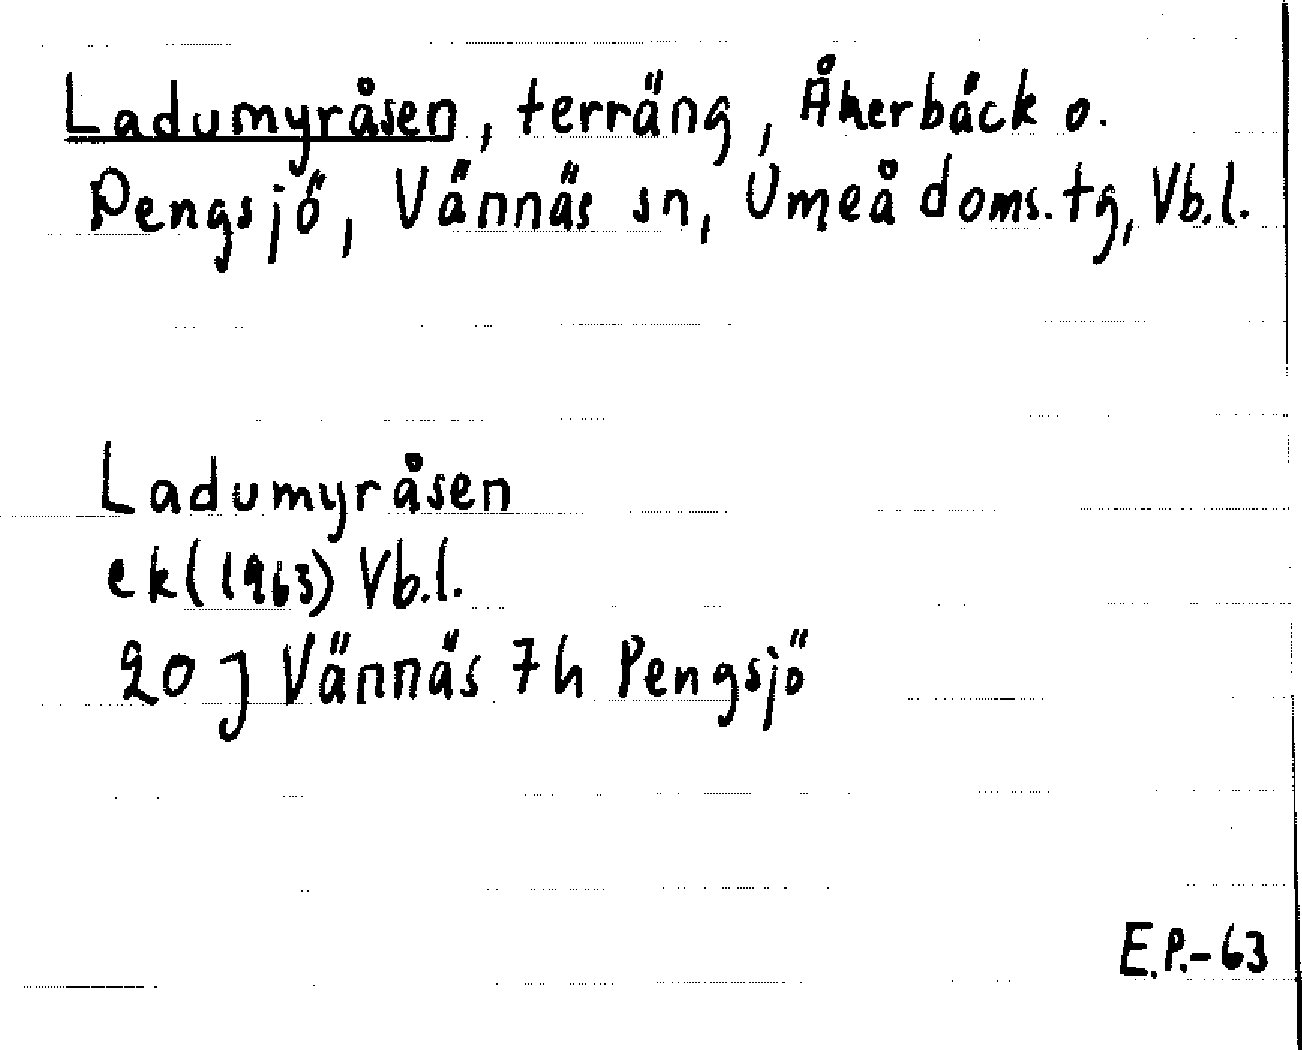 Ladumyråsen, terräng, Åkerbäck o.
Pengsjö, Vännäs sn, Umeå doms.tg, Vb.l.
Ladumyråsen
ek (1963) Vb.l.
20 J Vännäs 7h Pengsjö
E.P.-63